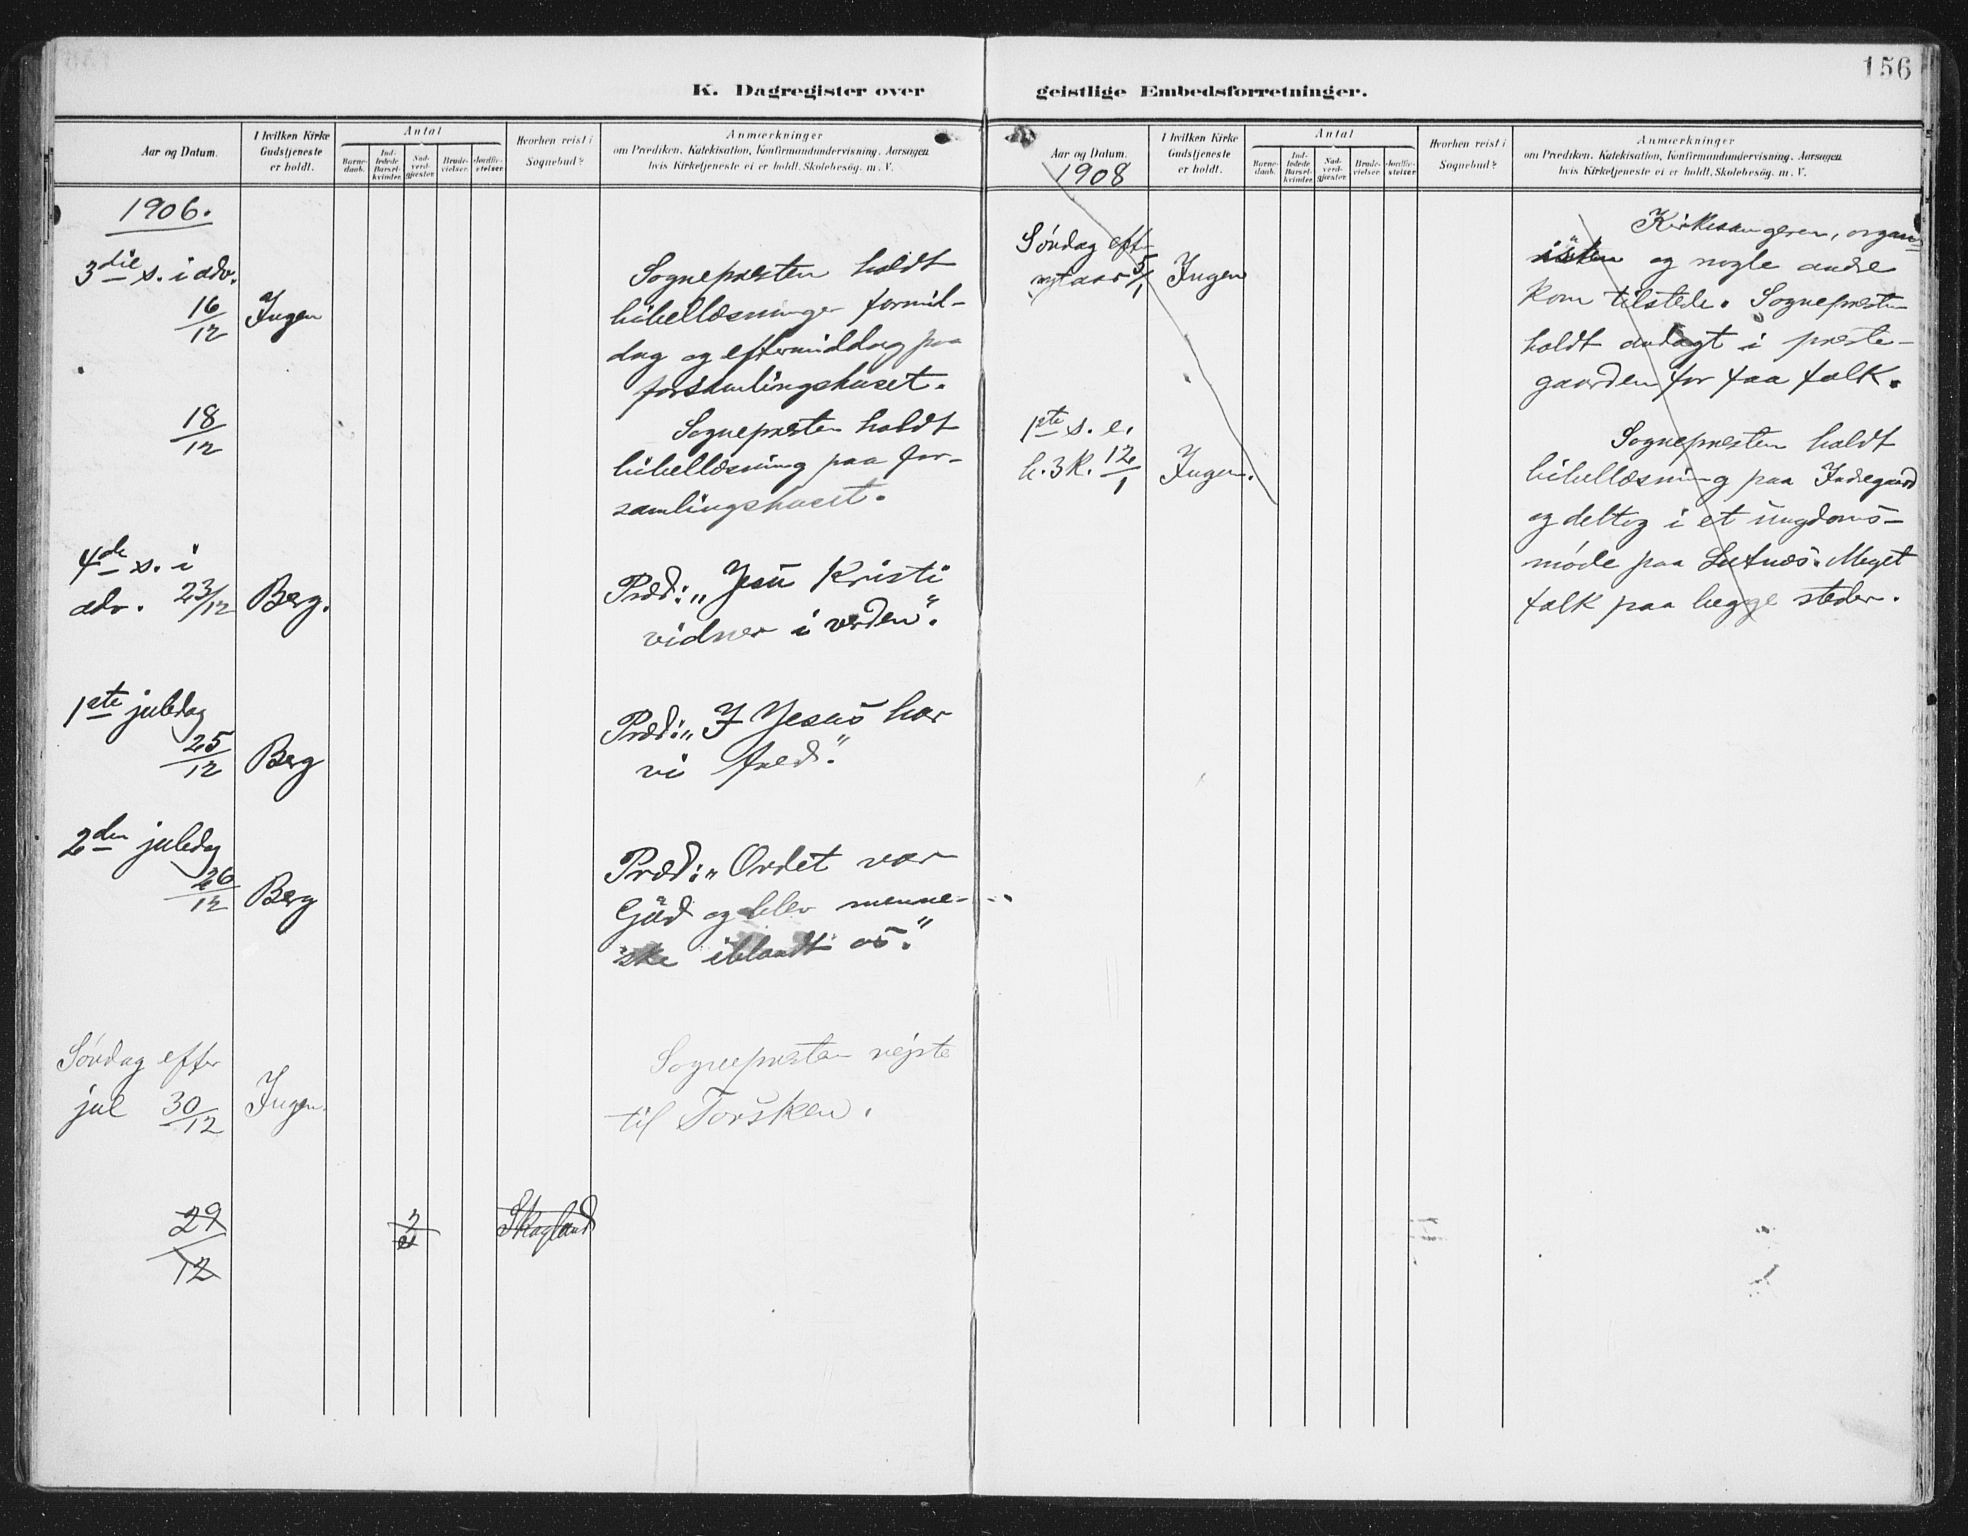 156
K. Dagregister over
geistlige Embedsforretninger.
Aar og Datum.
I hvilken Kirke
Gudstjeneste
er holdt.
Antal
Barne-
daab.
Ind-
ledede
Barsel-
kvinder.
Nad-
verd-
gjæster.
Brude-
vielser.
Jordfæ-
stelser.
Hvorhen reist i
Sognebud?
Anmærkninger
om Prædiken, Katekisation, Konfirmandundervisning, Aarsagen
hvis Kirketjeneste ei er holdt, Skolebesøg, m. V.
1906.
3die s. i adv.
16/12 Ingen
Sognepresten holdt
bibellæsninger formid-
dag og eftermiddag paa
forsamlingshuset.
18/12
Sognepresten holdt
bibellæsning paa for-
samlingshuset.
4de s. i
adv. 23/12 Berg.
Præd: „Jesu Kristi
vidner i verden".
1ste juledag
25/12 Berg
Præd: „I Jesus har
vi fred."
2den juledag
26/12 Berg
Præd: „Ordet var
Gud og blev menne-
ske iblandt os."
Søndag efter
jul 30/12 Ingen.
Sognepresten rejste
til Torsken.
29/12 2 Skagland
Aar og Datum.
I hvilken Kirke
Gudstjeneste
er holdt.
Antal
Barne-
daab.
Ind-
ledede
Barsel-
kvinder.
Nad-
verd-
gjæster.
Brude-
vielser.
Jordfæ-
stelser.
Hvorhen reist i
Sognebud?
Anmærkninger
om Prædiken, Katekisation, Konfirmandundervisning, Aarsagen
hvis Kirketjeneste ei er holdt, Skolebesøg, m. V.
1908
Søndag eft.
nytaar 5/1 Ingen
Kirkesangeren, organ-
isten og nogle andre
kom tilstede. Sognepresten
holdt andagt i preste-
gaarden for faa folk.
1ste s. e.
h. 3 k. 12/1 Ingen.
Sognepresten holdt
bibellæsning paa Indregaard
og deltog i et ungdoms-
møde paa Lutnæs. Meget
folk paa begge steder.